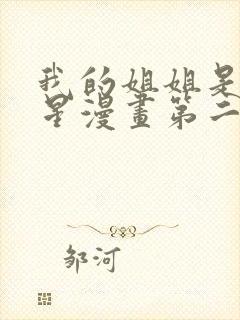 我的姐姐是
星漫畫第二
邹河